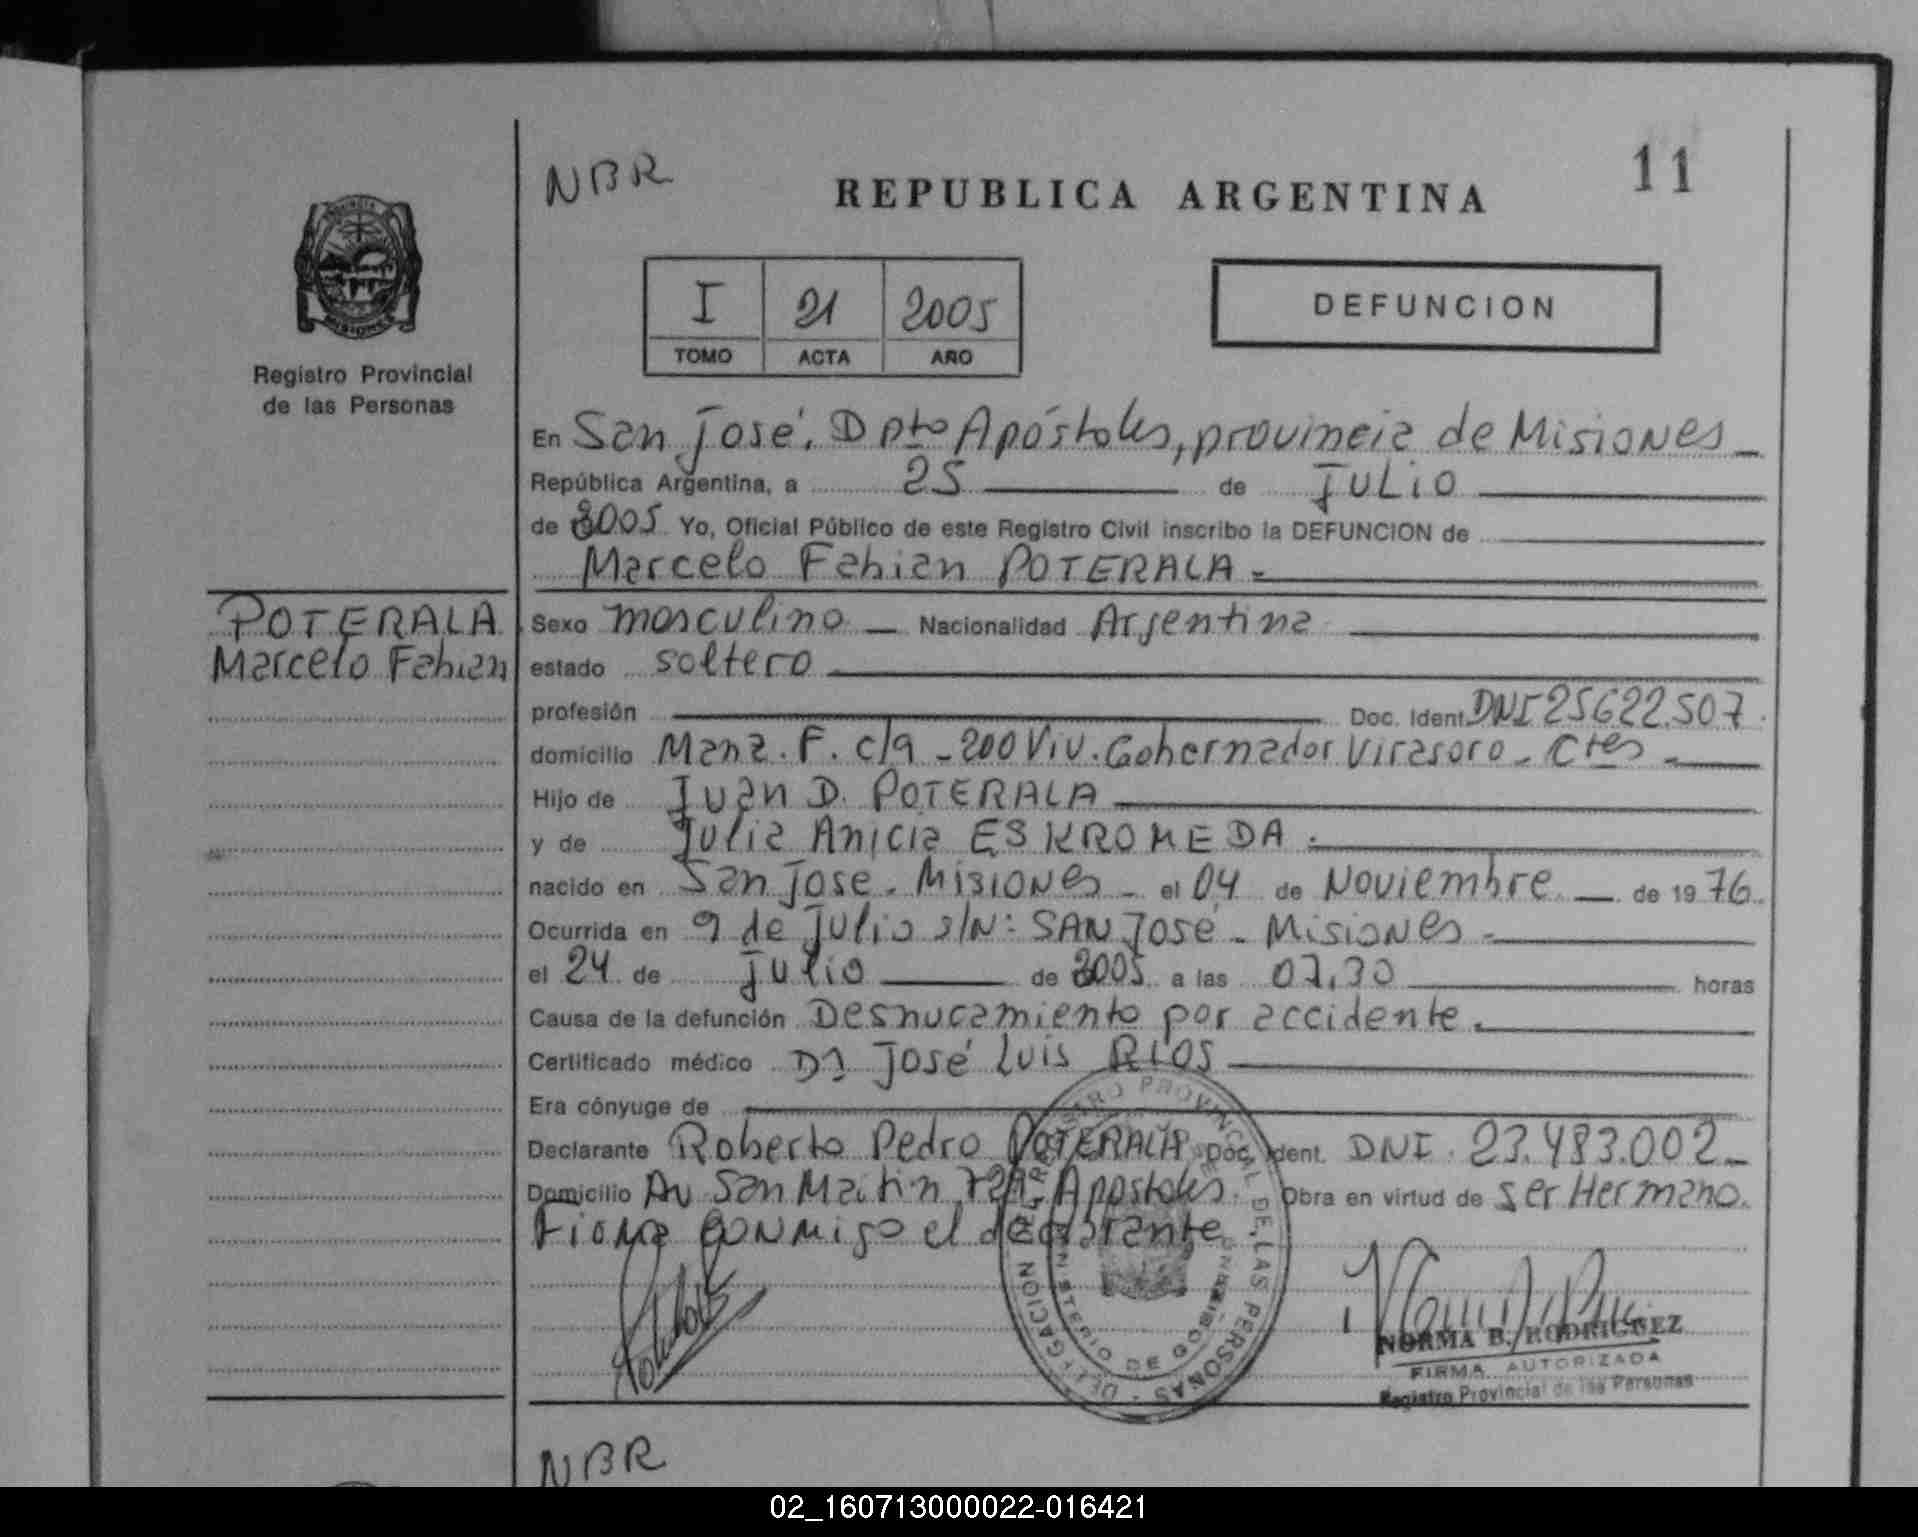 NBR
REPUBLICA ARGENTINA
11
PROVINCIA
MISIONES
Registro Provincial
de las Personas
I 21 2005
TOMO ACTA AÑO
DEFUNCION
En San José, Dpto Apóstoles, provincia de Misiones
República Argentina, a 25 de Julio
de 2005 Yo, Oficial Público de este Registro Civil inscribo la DEFUNCION de
Marcelo Fabian POTERALA
POTERALA
Marcelo Fabian
Sexo masculino Nacionalidad Argentina
estado soltero
profesión Doc. Ident. DNI 25622.507
domicilio Manz. F. c/9 - 200 Viv. Gobernador Virasoro - Ctes -
Hijo de Juan D. POTERALA
y de Julia Anicia ESKROMEDA
nacido en San Jose - Misiones - el 04 de Noviembre de 1976
Ocurrida en 9 de Julio s/N: SAN José - Misiones -
el 24 de Julio de 2005 a las 07,30 horas
Causa de la defunción Desnucamiento por accidente.
Certificado médico Dr José Luis RIOS
Era cónyuge de
Declarante Roberto Pedro POTERALA Doc. Ident. DNI 23.483.002
Domicilio Av San Martin Apostoles. Obra en virtud de ser Hermano.
Firma conmigo el declarante
DELEGACION DEL REGISTRO PROVINCIAL DE LAS PERSONAS
MINISTERIO DE GOBIERNO
NORMA B. RODRIGUEZ
FIRMA AUTORIZADA
Registro Provincial de las Personas
NBR
02_160713000022-016421